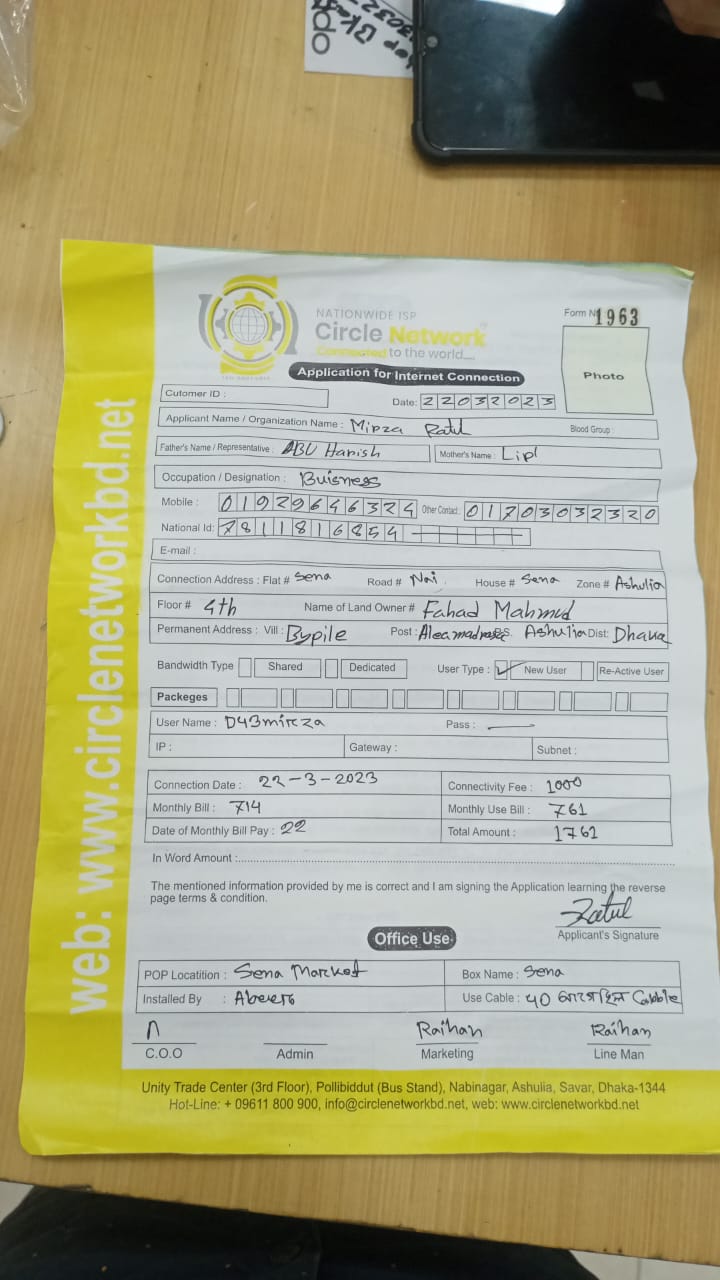 NATIONWIDE ISP
Circle Network
Connected to the world....
Form N 1963
Photo
Application for Internet Connection
Cutomer ID :
Date: 22032023
Applicant Name / Organization Name : Mirza Ratul Blood Group :
Father's Name / Representative : ABU Harish Mother's Name : Lipi
Occupation / Designation : Buisness
Mobile : 01929646324 Other Contact : 01703032320
National Id: 7811816854
E-mail :
Connection Address : Flat # Sena Road # Nai House # Sena Zone # Ashulia
Floor # 4th Name of Land Owner # Fahad Mahmud
Permanent Address : Vill : Bypile Post : P.S. Ashulia Dist: Dhaka
Bandwidth Type Shared Dedicated User Type : New User Re-Active User
Packeges
User Name : D43mirza Pass :
IP : Gateway : Subnet :
Connection Date : 22-3-2023 Connectivity Fee : 1000
Monthly Bill : 714 Monthly Use Bill : 761
Date of Monthly Bill Pay : 22 Total Amount : 1761
In Word Amount :
The mentioned information provided by me is correct and I am signing the Application learning the reverse
page terms & condition.
Ratul
Applicant's Signature
Office Use
POP Locatition : Sena Market Box Name : Sena
Installed By : Use Cable : 40 Cabble
Raihan Raihan
C.O.O Admin Marketing Line Man
Unity Trade Center (3rd Floor), Pollibiddut (Bus Stand), Nabinagar, Ashulia, Savar, Dhaka-1344
Hot-Line: + 09611 800 900, info@circlenetworkbd.net, web: www.circlenetworkbd.net
web: www.circlenetworkbd.net